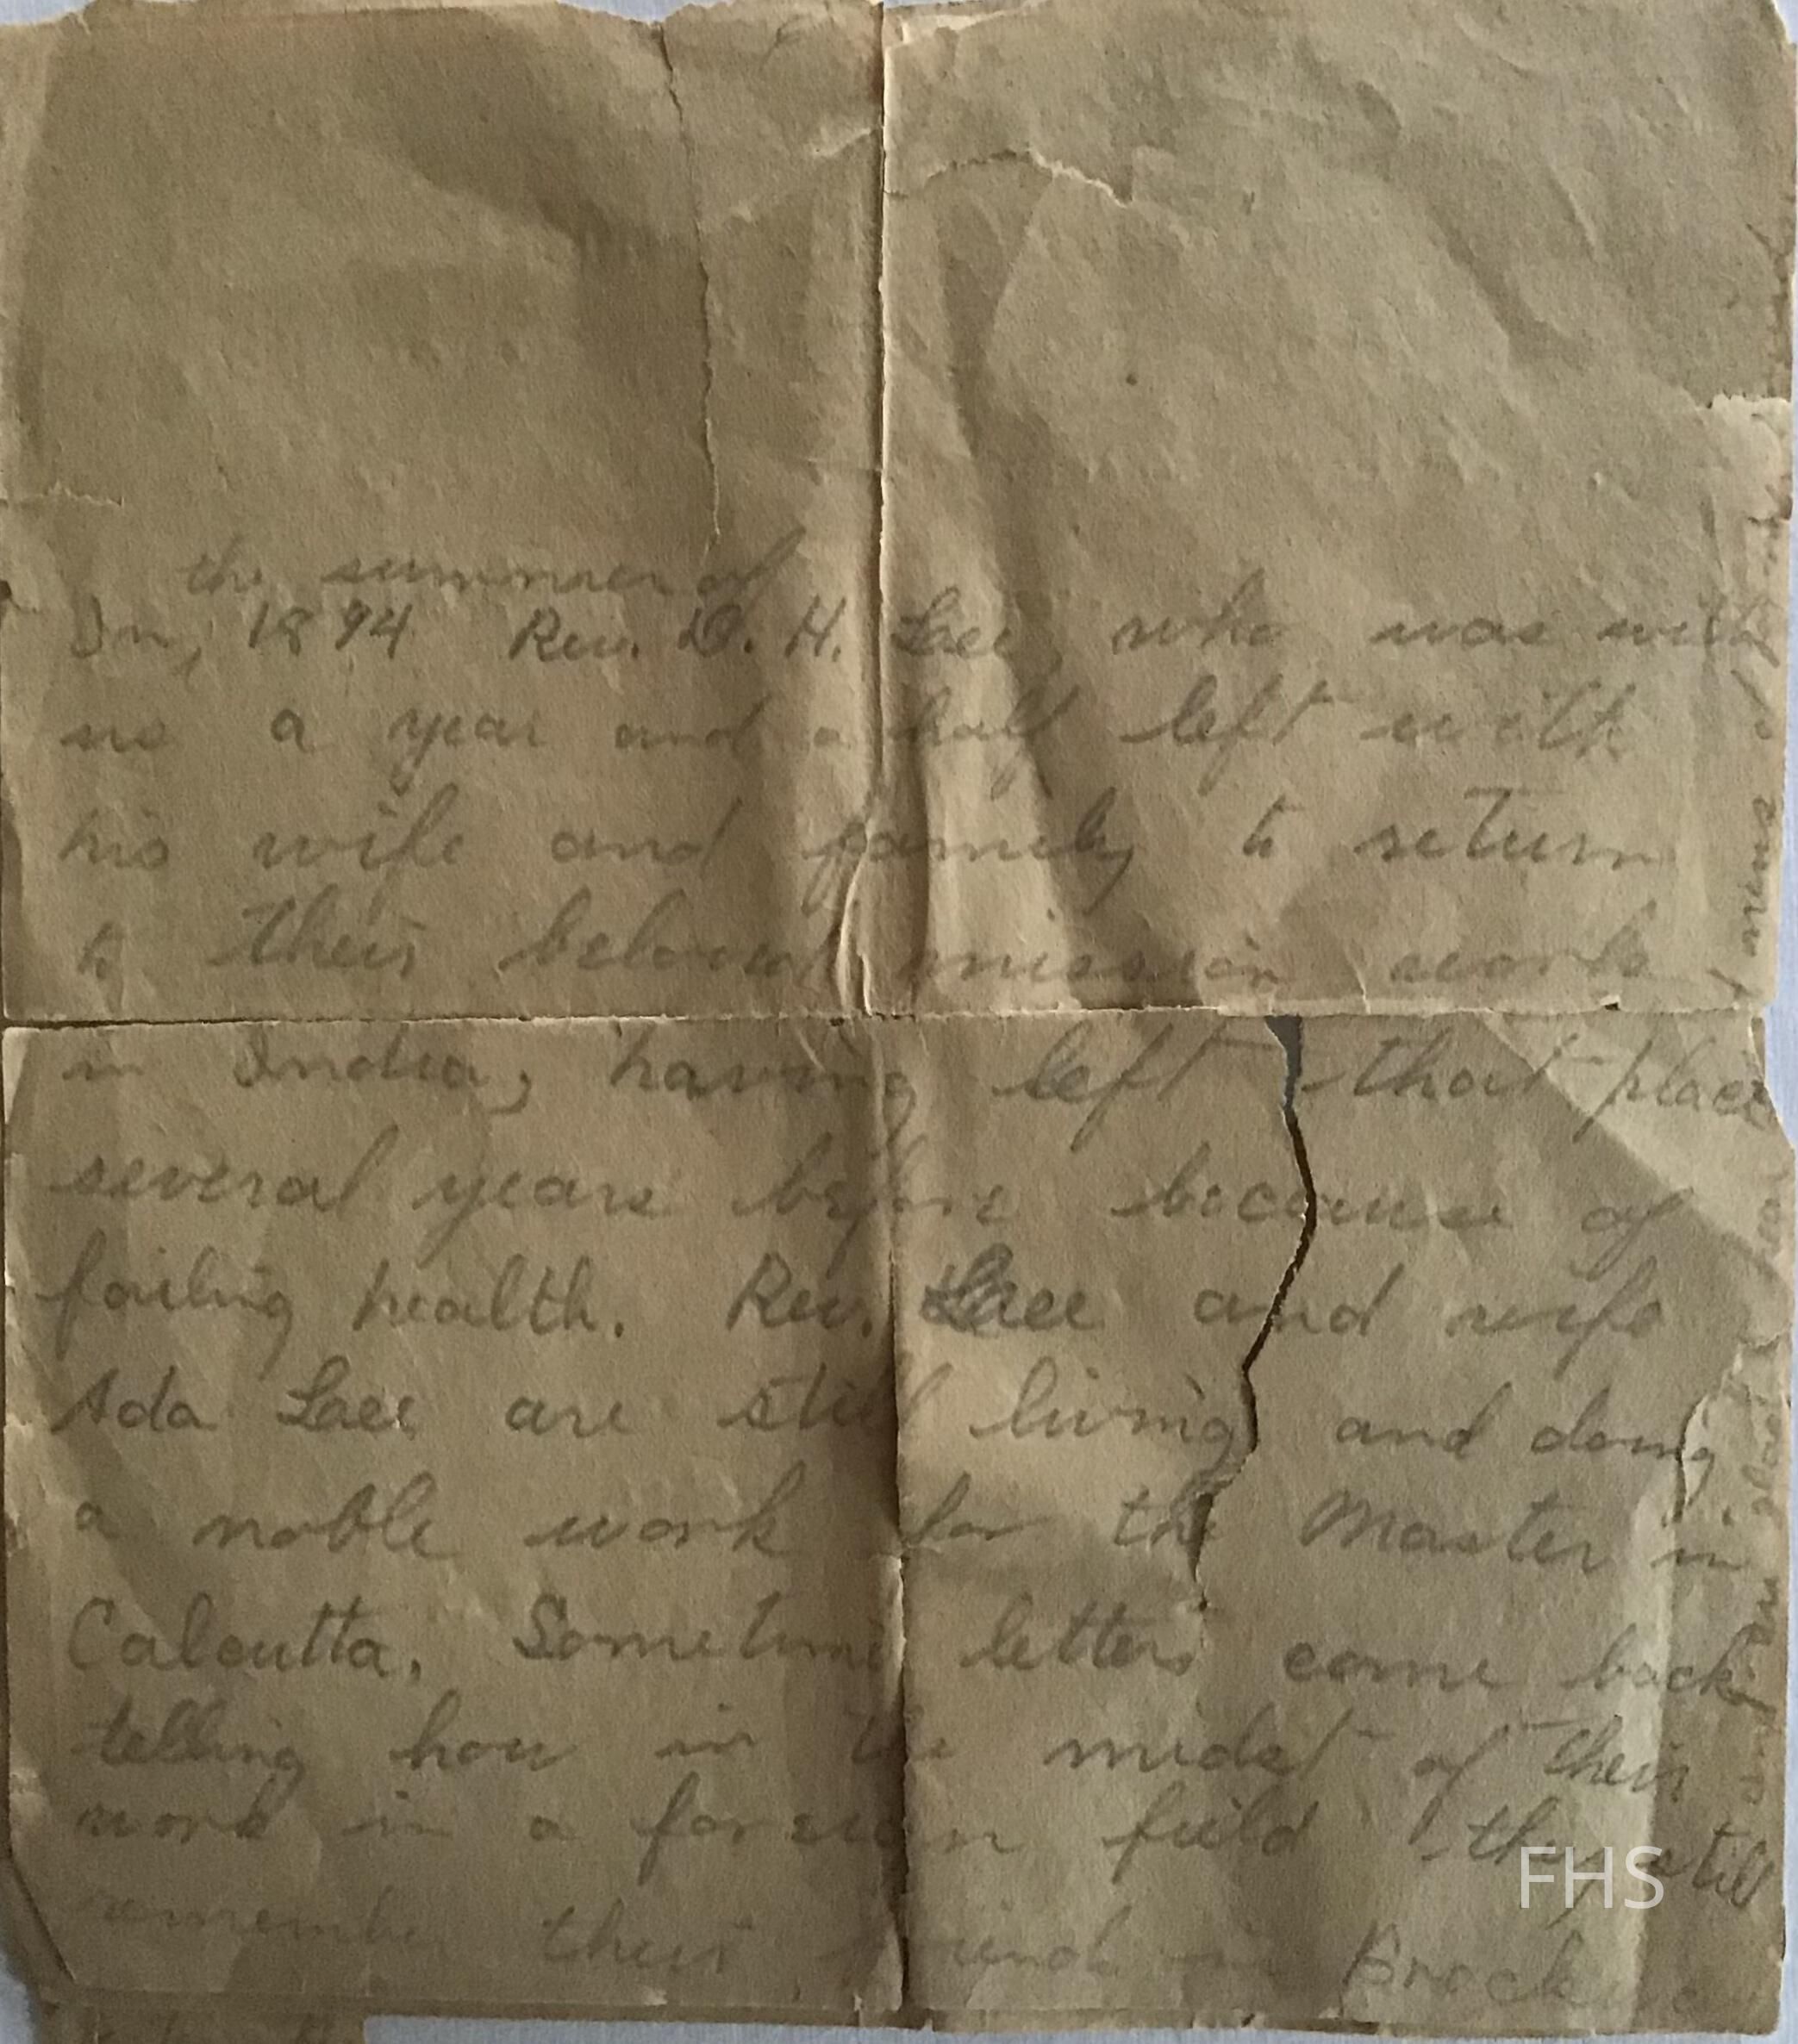 the summer of
In, 1894 Rev. D. H. Lee, who was with
us a year and a half left with
his wife and family to return
to their beloved mission work
in India, having left that place
several years before because of
failing health. Rev. Lee and wife
Ada Lee are still living and doing
a noble work for the Master in
Calcutta. Sometime letters come back
telling how in the midst of their
work in a foreign field they still
remember their friends in
FHS